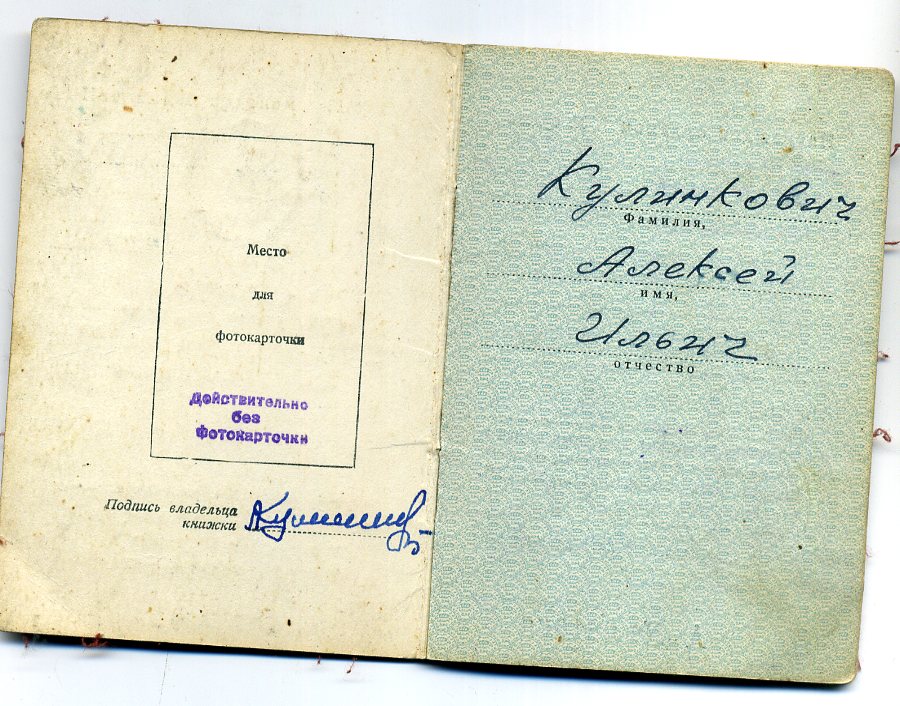 Место
для
фотокарточки
Действительно
без
фотокарточки
Подпись владельца
книжки
Кулинкович
фамилия,
Алексей
имя,
Ильич
отчество